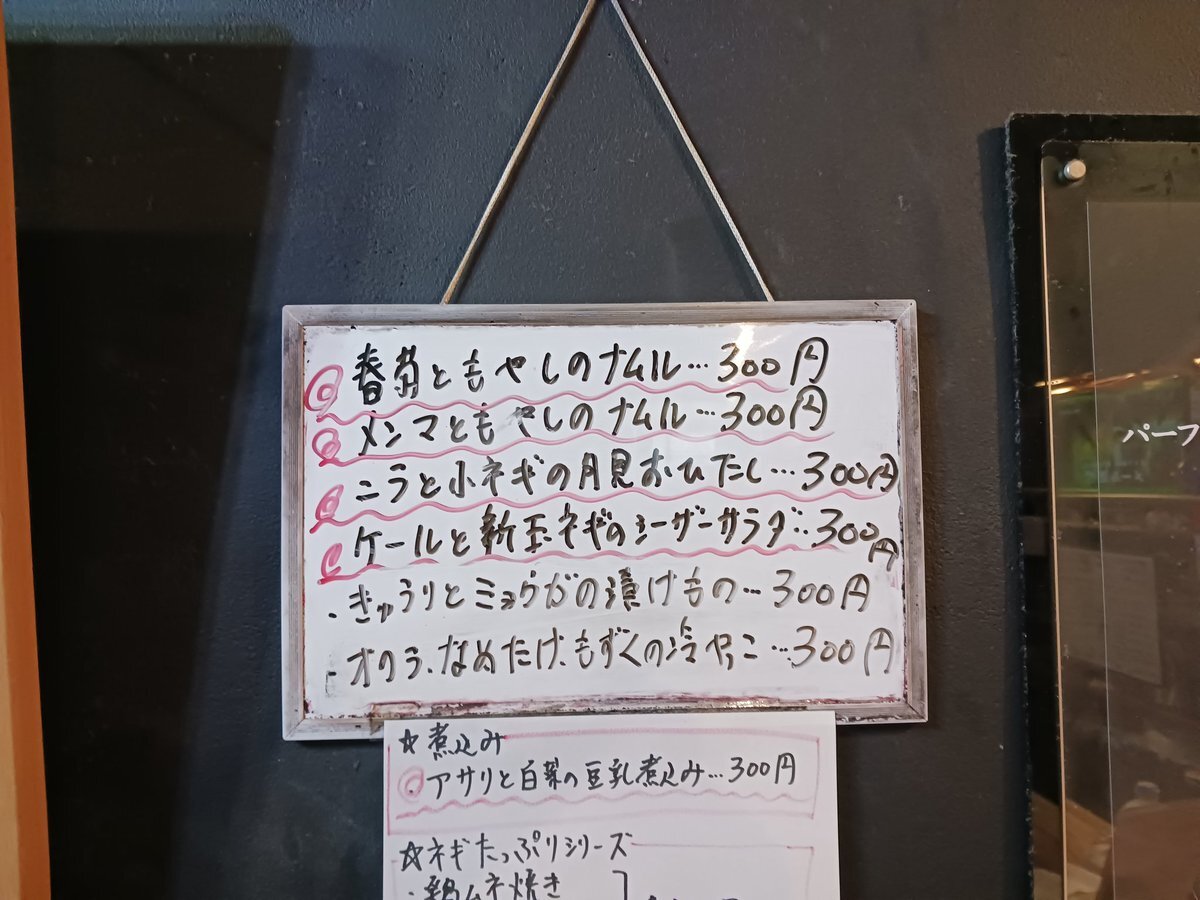 ◎春菊ともやしのナムル…300円
◎メンマともやしのナムル…300円
◎ニラと小ネギの月見おひたし…300円
◎ケールと新玉ネギのシーザーサラダ…300円
・きゅうりとミョウガの漬けもの…300円
・オクラ、なめたけ、もずくの冷やっこ…300円
☆煮込み
◎アサリと白菜の豆乳煮込み…300円
☆ネギたっぷりシリーズ
・鶏ムネ焼き
パーフ